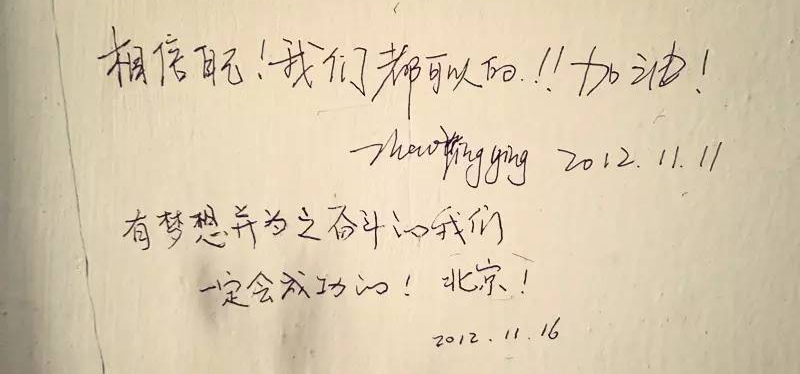 相信自己！我们都可以的.!!加油！
2012.11.11
有梦想并为之奋斗的我们
一定会成功的！北京！
2012.11.16